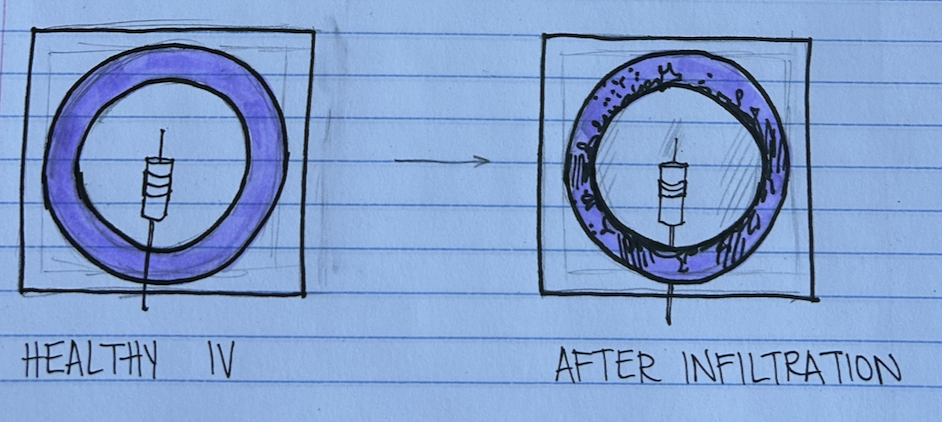 HEALTHY IV
AFTER INFILTRATION